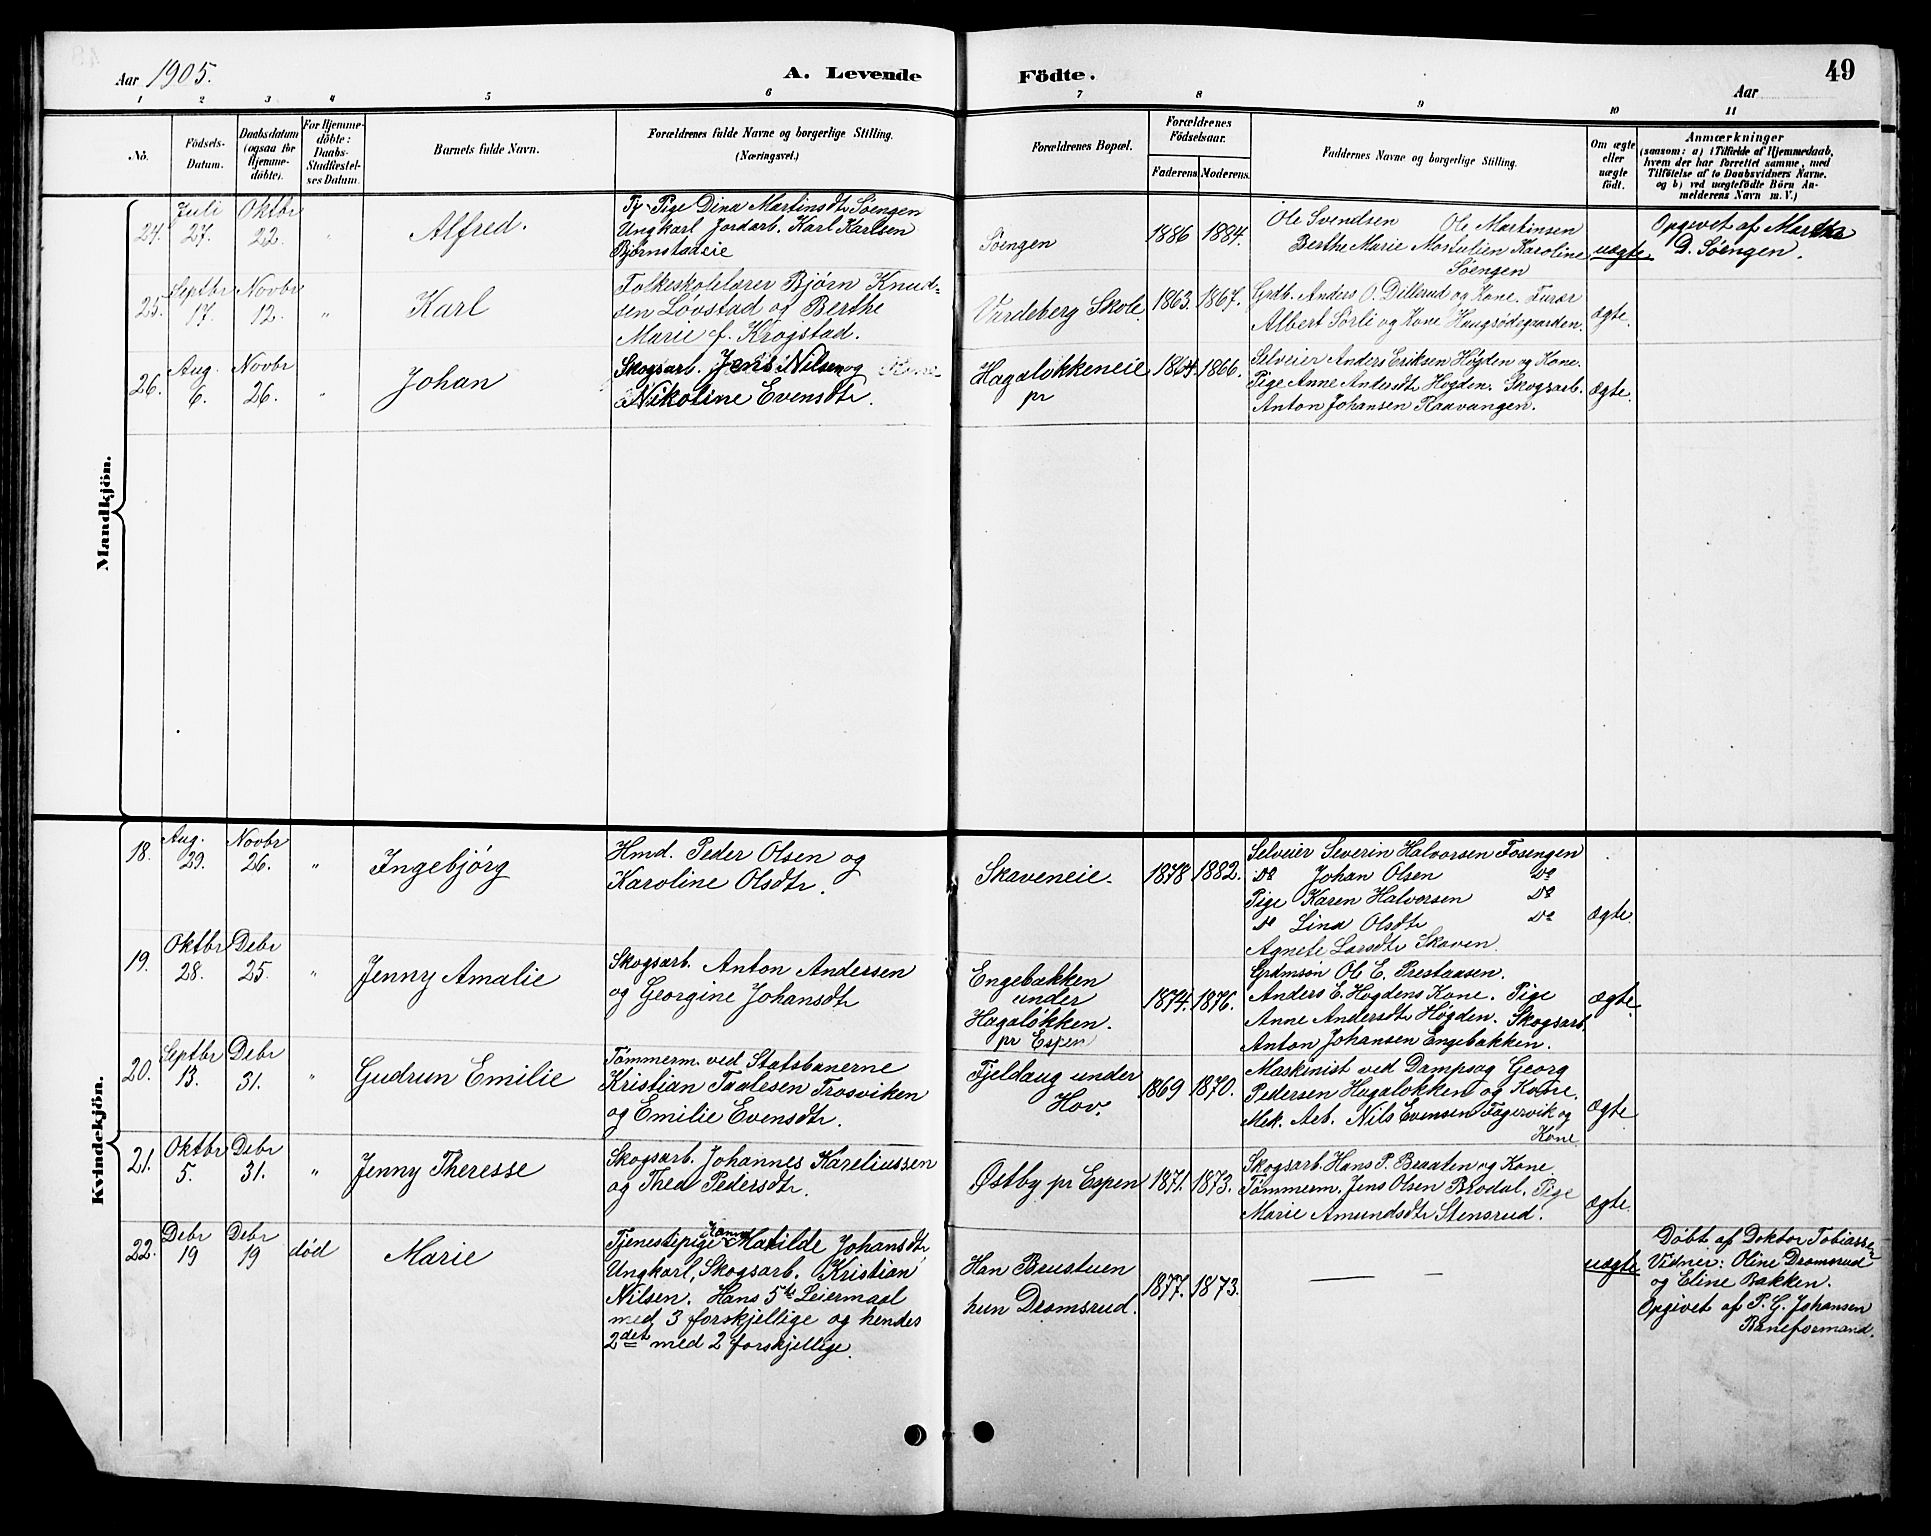 Aar 1905.
A. Levende
Födte.
49
Aar
1 2 3 4 5 6 7 8 9 10 11
No.
Födsels-
Datum.
Daabsdatum
(ogsaa for
Hjemme-
döbte).
For Hjemme-
döbte:
Daabs-
Stadfæstel-
ses Datum.
Barnets fulde Navn.
Forældrenes fulde Navne og borgerlige Stilling.
(Næringsvei.)
Forældrenes Bopæl.
Forældrenes
Födselsaar.
Faderens. Moderens.
Faddernes Navne og borgerlige Stilling.
Om ægte
eller
uægte
födt.
Anmærkninger
(saasom: a) i Tilfælde af Hjemmedaab,
hvem der har forrettet samme, med
Tilföielse af to Daabsvidners Navne.
og b) ved uægtefödte Börn An-
melderens Navn m. V.)
Mandkjön.
24.
Juli
27.
Oktbr
22.
"
Alfred.
Tj. Pige Dina Martinsdtr Söengen
Ungkarl Jordarb. Karl Karlsen
Bjørnstadeie
Söengen
1886 1884.
Ole Svendsen Ole Martinsen
Berthe Marie Mostulien Karoline
Söengen
uægte
Opgivet af Martha
D. Söengen.
25.
Septbr
17.
Novbr
12.
"
Karl
Folkeskolelærer Bjørn Knud-
sen Løvstad og Berthe
Marie f. Krogstad.
Vardeberg Skole.
1863. 1867.
Grdb. Anders O. Dillerud og Kone. Furer
Albert Sörli og Kone Haugsødegaarden.
Ægte.
26.
Aug.
6.
Novbr
26.
"
Johan
Skogsarb. Jens Nilsen og Kone
Nikoline Evensdtr.
Hagaløkkeneie
pr
1864. 1866.
Selveier Anders Eriksen Høgden og Kone.
Pige Anne Andersdtr Høgden. Skogsarb.
Anton Johansen Raavangen.
Ægte.
Kvindekjön.
18.
Aug.
29.
Novbr
26.
"
Ingebjörg
Hmd. Peder Olsen og
Karoline Olsdtr.
Skaveneie.
1878 1882.
Selveier Severin Halvorsen Fosengen
Do Johan Olsen Do
Pige Karen Halvorsen Do
Do Lina Olsdtr Do
Agnete Larsdtr Skaven.
Ægte
19.
Oktbr
28.
Debr
25.
"
Jenny Amalie
Skogsarb. Anton Andersen
og Georgine Johansdtr
Engebakken
under
Hagaløkken.
pr Espen
1874. 1876.
Grdmsön Ol E. Prestaasen.
Anders E. Hogdens Kone. Pige
Anne Andersdtr Høgden. Skogsarb.
Anton Johansen Engebakken.
Ægte
20.
Septbr
13.
Debr
31.
"
Gudrun Emilie
Tömmerm. ved Statsbanerne
Kristian Taalesen Trosviken
og Emilie Evensdtr.
Fjeldaug under
Hov.
1869 1870.
Maskinist ved Dampsag Georg
Pedersen Hagaløkken og Kone.
Mek. Aeb. Nils Evensen Fagervik og
Kone
Ægte
21.
Oktbr
5.
Debr
31.
"
Jenny Theresse
Skogsarb. Johannes Kareliussen
og Thea Pedersdtr.
Østby pr Espen
1871. 1873.
Skogsarb. Hans P. Braaten og Kone.
Tömmerm. Jens Olsen Brodal. Pige
Marie Amundsdtr Stensrud.
Ægte.
22.
Debr
19
Debr
19
död
Marie
Tjenestepige Hanna Matilde Johansdtr
Ungkarl, Skogsarb. Kristian
Nilsen. Hans 5te Leiermaal
med 3 forskjellige og hendes
2det med 2 forskjellige.
Han Brustuen
hun Dromsrud.
1877. 1873.
— —
uægte
Döbt af Doktor Tobiassen
Vidner: Oline Dromsrud
og Eline Bakken.
Opgivet af P. G. Johansen
Baneformand.